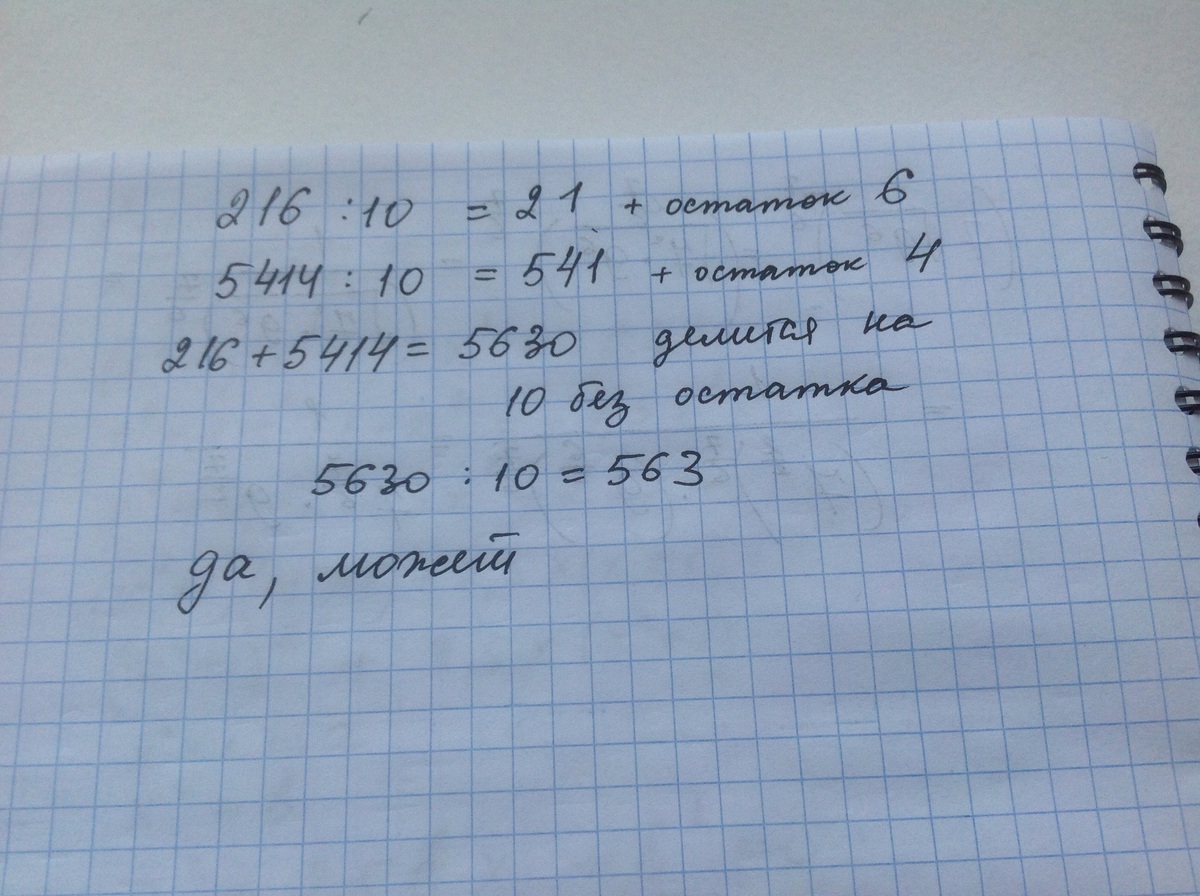 216 : 10 = 21 + остаток 6
5414 : 10 = 541 + остаток 4
216 + 5414 = 5630 делится на
10 без остатка
5630 : 10 = 563
да, может